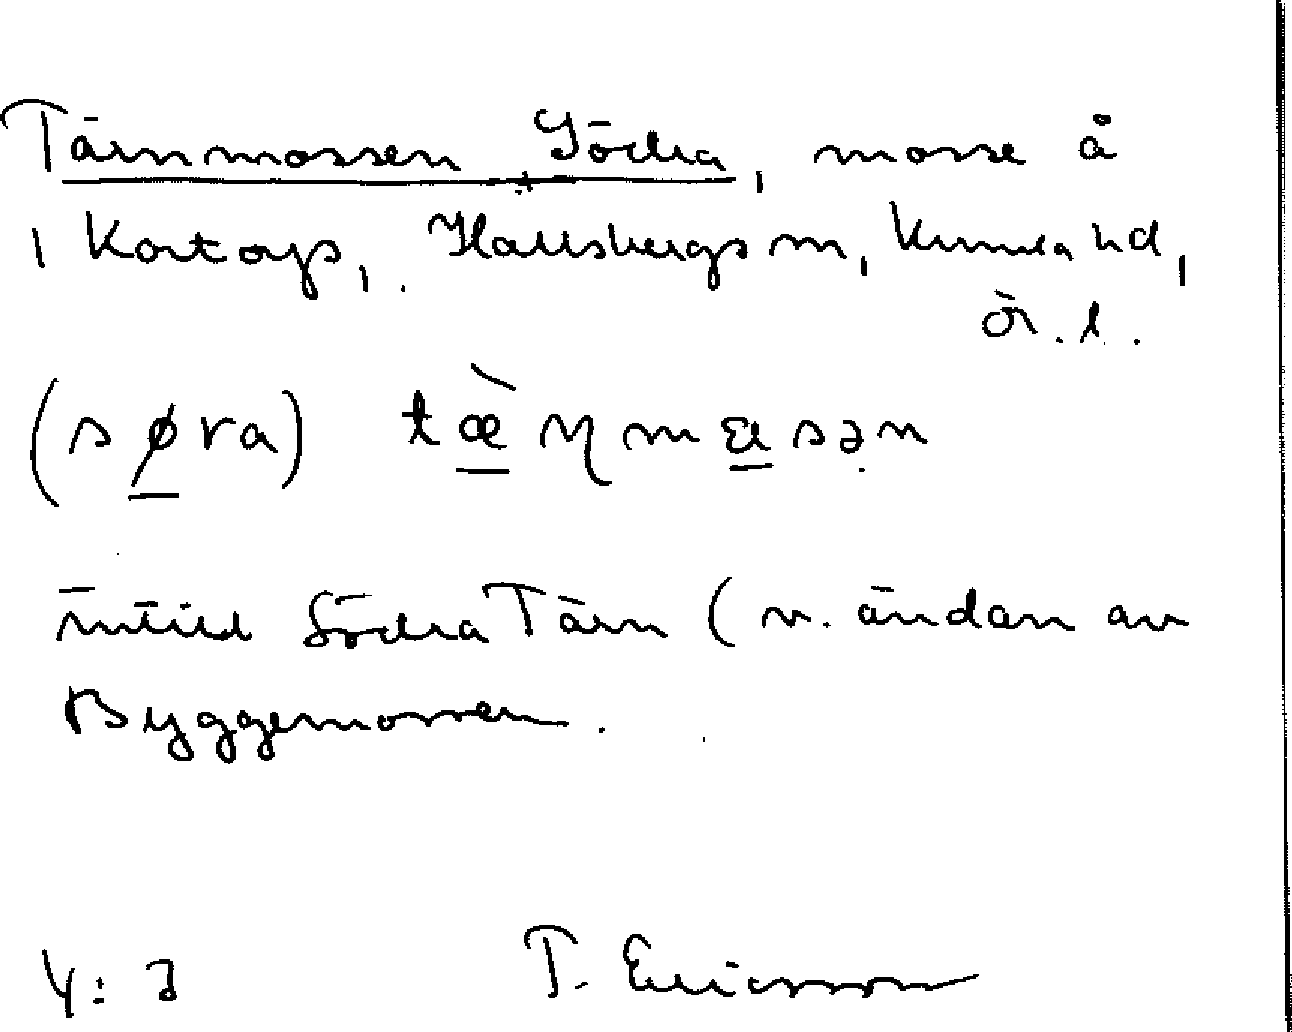 Tärnmossen Södra, mosse å
1 Kortorp, Hallsbergs sn, Kumla hd,
Ör. l.
(søra) tæ̀ɳm sən
intill Södra Tärn (n. ändan av
Byggemossen.
4: 3 T. Ericsson